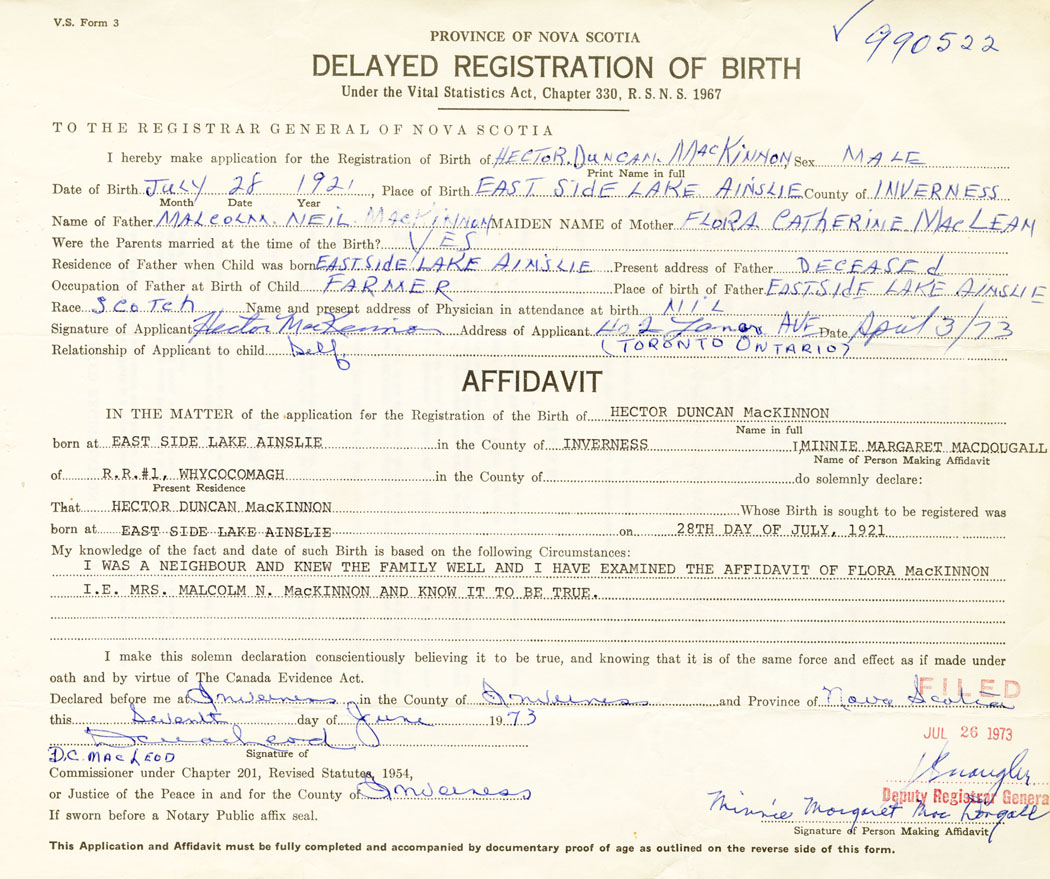 V.S. Form 3
990522
PROVINCE OF NOVA SCOTIA
DELAYED REGISTRATION OF BIRTH
Under the Vital Statistics Act, Chapter 330, R. S. N. S. 1967
TO THE REGISTRAR GENERAL OF NOVA SCOTIA
I hereby make application for the Registration of Birth of HECTOR DUNCAN MACKINNON, Sex MALE
Print Name in full
Date of Birth JULY 28 1921, Place of Birth EAST SIDE LAKE AINSLIE County of INVERNESS
Month Date Year
Name of Father MALCOLM NEIL MACKINNON MAIDEN NAME of Mother FLORA CATHERINE MACLEAN
Were the Parents married at the time of the Birth? YES
Residence of Father when Child was born EASTSIDE LAKE AINSLIE Present address of Father DECEASEd
Occupation of Father at Birth of Child FARMER Place of birth of Father EASTSIDE LAKE AINSLIE
Race SCOTCH Name and present address of Physician in attendance at birth NIL
Signature of Applicant Hector MacKinnon Address of Applicant 402 AVE Date April 3/73
Relationship of Applicant to child Self (TORONTO ONTARIO)
AFFIDAVIT
IN THE MATTER of the application for the Registration of the Birth of HECTOR DUNCAN MacKINNON
Name in full
born at EAST SIDE LAKE AINSLIE in the County of INVERNESS I, MINNIE MARGARET MACDOUGALL
Name of Person Making Affidavit
of R.R.#1, WHYCOCOMAGH in the County of do solemnly declare:
Present Residence
That HECTOR DUNCAN MacKINNON Whose Birth is sought to be registered was
born at EAST SIDE LAKE AINSLIE on 28TH DAY OF JULY, 1921
My knowledge of the fact and date of such Birth is based on the following Circumstances:
I WAS A NEIGHBOUR AND KNEW THE FAMILY WELL AND I HAVE EXAMINED THE AFFIDAVIT OF FLORA MacKINNON
I.E. MRS. MALCOLM N. MacKINNON AND KNOW IT TO BE TRUE.
I make this solemn declaration conscientiously believing it to be true, and knowing that it is of the same force and effect as if made under
oath and by virtue of The Canada Evidence Act.
Declared before me at Inverness in the County of Inverness and Province of Nova Scotia
FILED
this Seventh day of June 1973
JUL 26 1973
D C MacLeod
D.C. MACLEOD Signature of
Commissioner under Chapter 201, Revised Statutes, 1954,
or Justice of the Peace in and for the County of Inverness
Deputy Registrar General
If sworn before a Notary Public affix seal.
Minnie Margaret MacDougall
Signature of Person Making Affidavit
This Application and Affidavit must be fully completed and accompanied by documentary proof of age as outlined on the reverse side of this form.